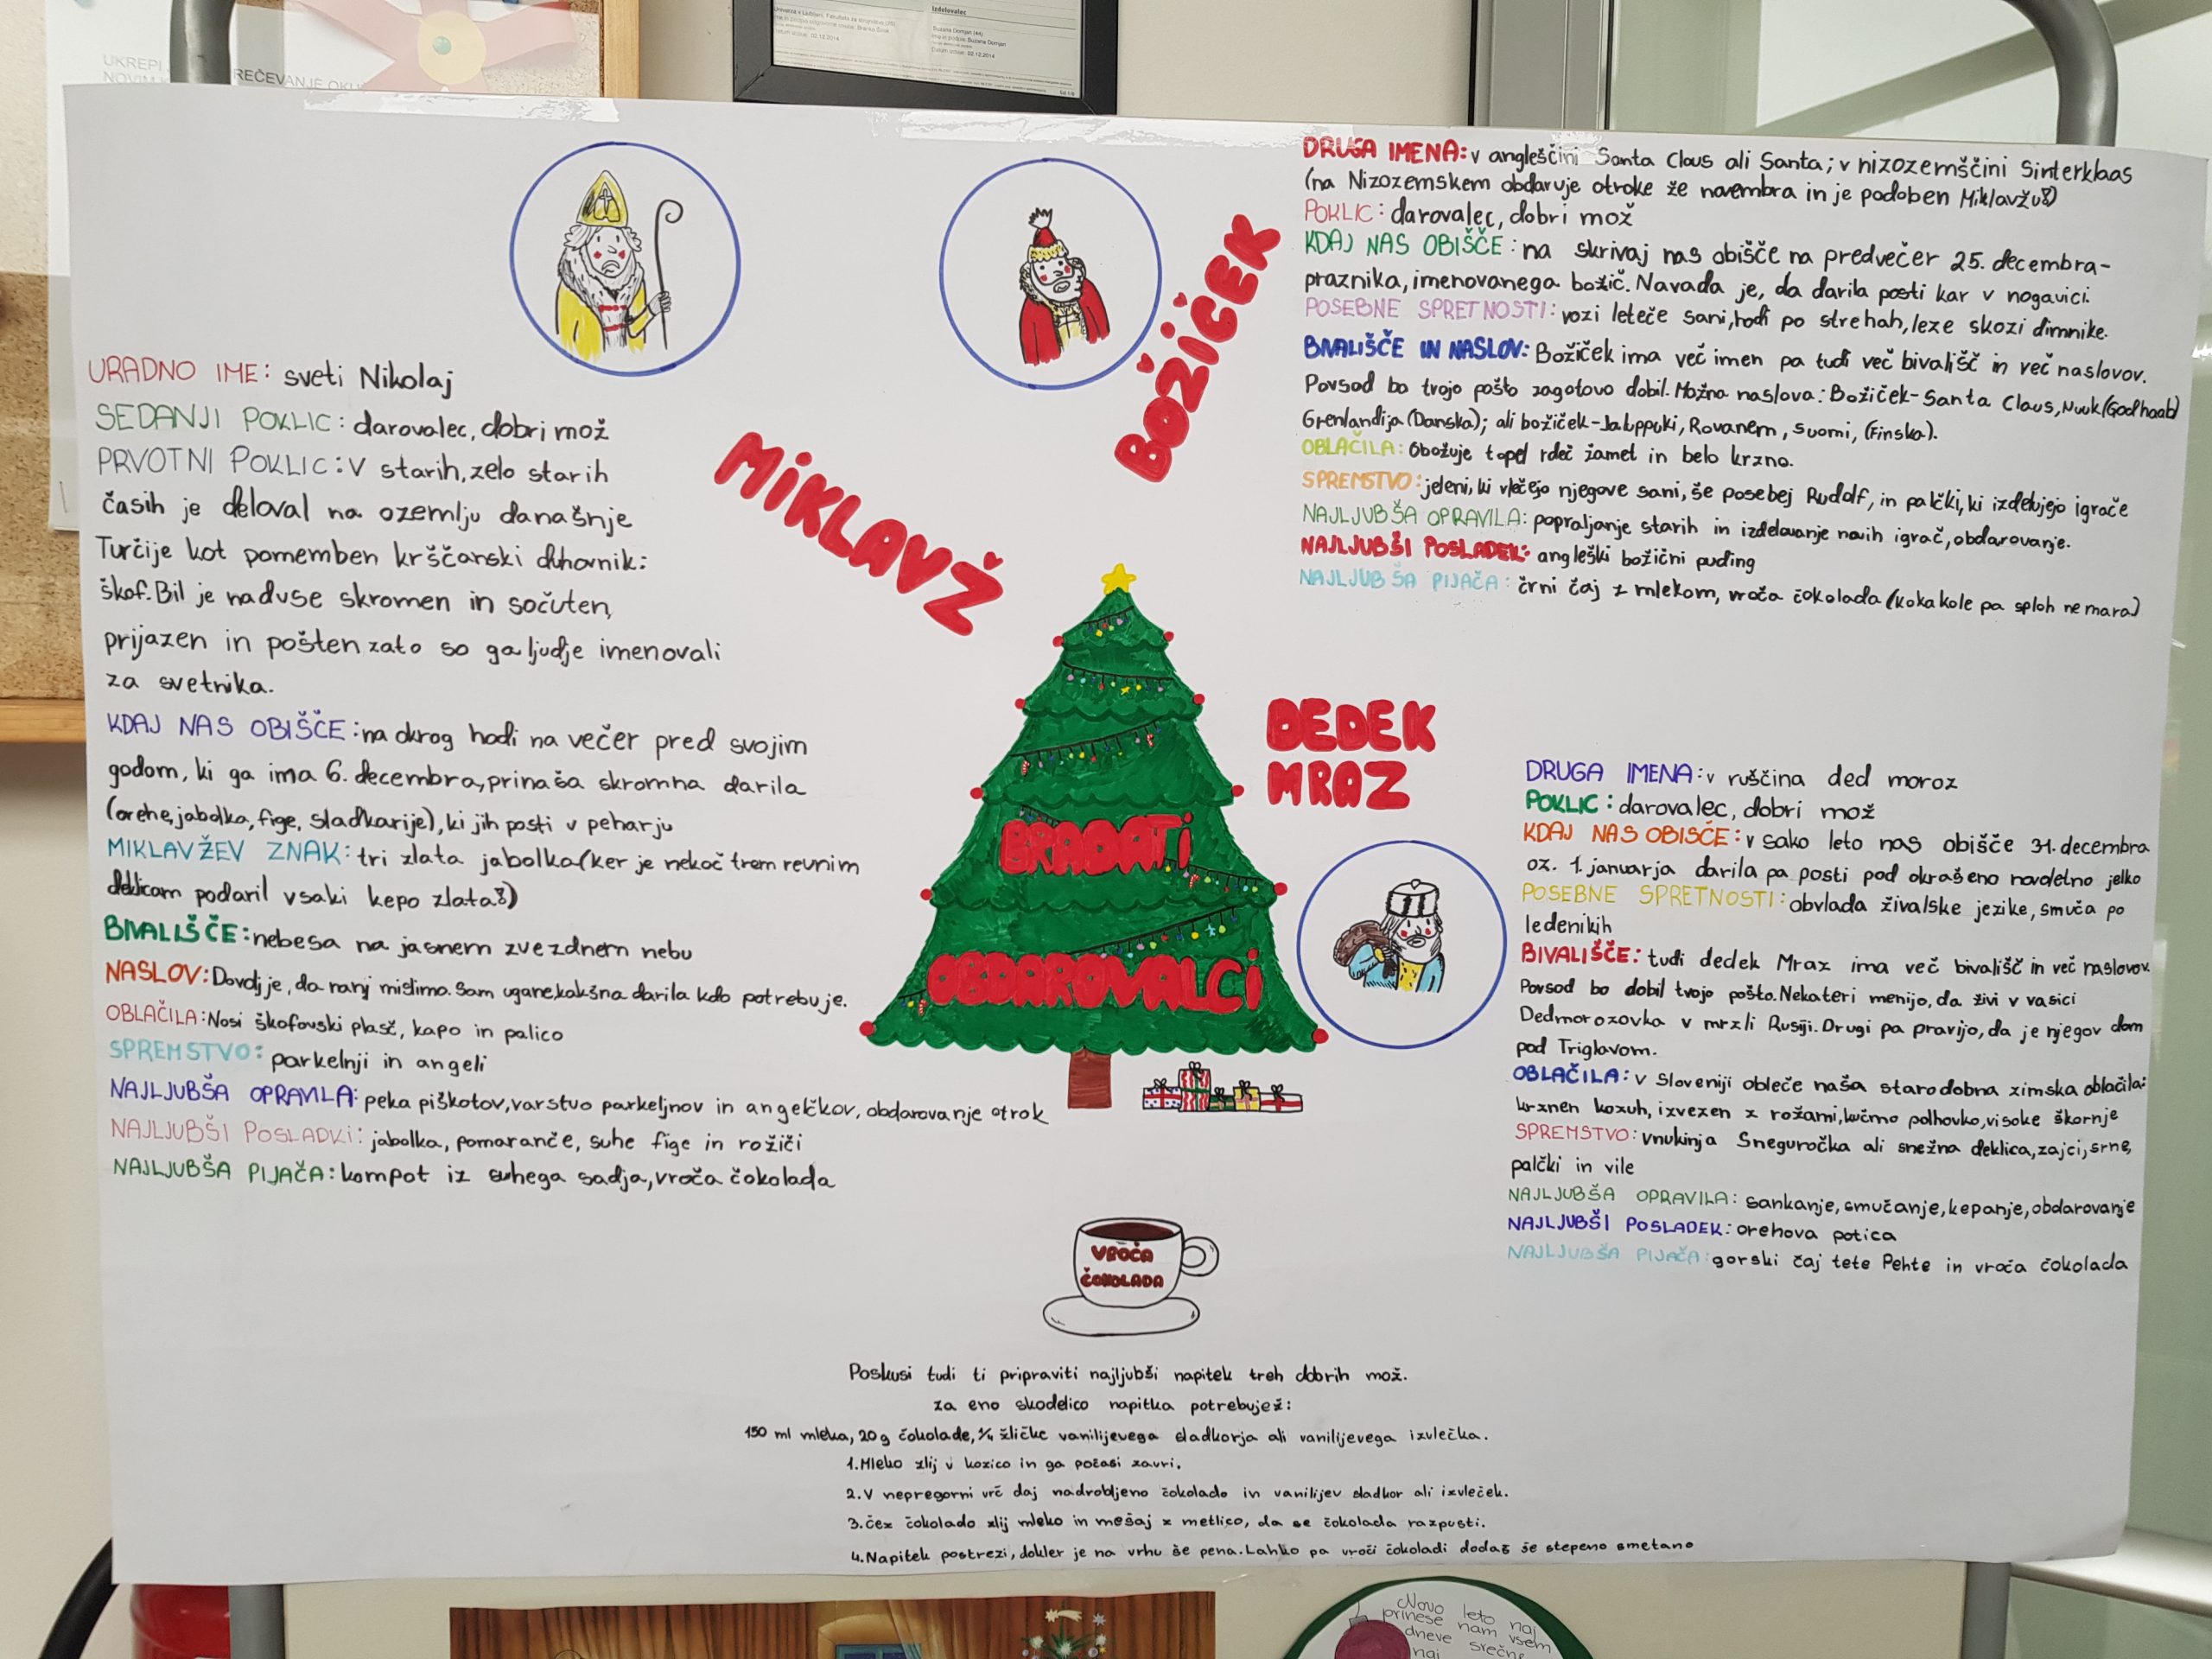 UKREPI
NOVIM
REČEVANJE OKU
Izdelovalec
Univerza v Ljubljani, Fakulteta za
Datum izdaje: 02.12.2014
Suzana Domjan
Datum izdaje: 02.12.2014
MIKLAVŽ
URADNO IME: sveti Nikolaj
SEDANJI POKLIC: darovalec, dobri mož
PRVOTNI POKLIC: v starih, zelo starih
časih je deloval na ozemlju današnje
Turčije kot pomemben krščanski duhovnik:
škof. Bil je naduse skromen in sočuten,
prijazen in pošten zato so ga ljudje imenovali
za svetnika.
KDAJ NAS OBIŠČE: na okrog hodi na večer pred svojim
godom, ki ga ima 6. decembra, prinaša skromna darila
(orehe, jabolka, fige, sladkarije), ki jih posti v peharju
MIKLAVŽEV ZNAK: tri zlata jabolka (ker je nekoč trem revnim
deklicam podaril vsaki kepo zlata!)
BIVALIŠČE: nebesa na jasnem zvezdnem nebu
NASLOV: Dovolj je, da nanj mislimo. Sam ugane, kakšna darila kdo potrebuje.
OBLAČILA: Nosi škofovski plašč, kapo in palico
SPREMSTVO: parkelnji in angeli
NAJLJUBŠA OPRAVILA: peka piškotov, varstvo parkeljnov in angelčkov, obdarovanje otrok
NAJLJUBŠI POSLADKI: jabolka, pomaranče, suhe fige in rožiči
NAJLJUBŠA PIJAČA: kompot iz suhega sadja, vroča čokolada
BOŽIČEK
DRUGA IMENA: v angleščini Santa Claus ali Santa; v nizozemščini Sinterklaas
(na Nizozemskem obdaruje otroke že novembra in je podoben Miklavžu!)
POKLIC: darovalec, dobri mož
KDAJ NAS OBIŠČE: na skrivaj nas obišče na predvečer 25. decembra-
praznika, imenovanega božič. Navada je, da darila posti kar v nogavici.
POSEBNE SPRETNOSTI: vozi leteče sani, hodi po strehah, leze skozi dimnike.
BIVALIŠČE IN NASLOV: Božiček ima več imen pa tudi več bivališč in več naslovov.
Povsod bo trojo pošto zagotovo dobil. Možna naslova: Božiček-Santa Claus, Nuuk (Godhaab)
Grenlandija (Danska); ali božiček-Jaluppuki, Rovanem, Suomi, (Finska).
OBLAČILA: Obožuje topel rdeč žamet in belo krzno.
SPREMSTVO: jeleni, ki vlečejo njegove sani, še posebej Rudolf, in palčki, ki izdelujejo igrače
NAJLJUBŠA OPRAVILA: popraljanje starih in izdelovanje novih igrač, obdarovanje.
NAJLJUBŠI POSLADEK: angleški božični puding
NAJLJUBŠA PIJAČA: črni čaj z mlekom, vroča čokolada (kokakole pa sploh ne mara)
BRADATI
OBDAROVALCI
DEDEK
MRAZ
DRUGA IMENA: v ruščina ded moroz
POKLIC: darovalec, dobri mož
KDAJ NAS OBIŠČE: v sako leto nas obišče 31. decembra
oz. 1. januarja darila pa posti pod okrašeno novoletno jelko
POSEBNE SPRETNOSTI: obvlada živalske jezike, smuča po
ledenikih
BIVALIŠČE: tudi dedek Mraz ima več bivališč in več naslovov.
Povsod bo dobil tvojo pošto. Nekateri menijo, da živi v vasici
Dedmorozovka v mrzli Rusiji. Drugi pa pravijo, da je njegov dom
pod Triglavom.
OBLAČILA: v Sloveniji obleče naša starodobna zimska oblačila:
krznen kozuh, izvezen z rožami, kučmo polhovko, visoke škornje
SPREMSTVO: vnukinja Sneguročka ali snežna deklica, zajci, srne,
palčki in vile
NAJLJUBŠA OPRAVILA: sankanje, smučanje, kepanje, obdarovanje
NAJLJUBŠI POSLADEK: orehova potica
NAJLJUBŠA PIJAČA: gorski čaj tete Pehte in vroča čokolada
VROČA
ČOKOLADA
Poskusi tudi ti pripraviti najljubši napitek treh dobrih mož.
za eno skodelico napitka potrebuješ:
150 ml mleka, 20g čokolade, 1/4 žličke vanilijevega sladkorja ali vanilijevega izvlečka.
1. Mleko zlij v kozico in ga počasi zavri.
2. V nepregorni vrč daj nadrobljeno čokolado in vanilijev sladkor ali izvleček.
3. čez čokolado zlij mleko in mešaj z metlico, da se čokolada razpusti.
4. Napitek postrezi, dokler je na vrhu še pena. Lahko pa vroči čokoladi dodaš še stepeno smetano
Novo leto naj
prinese nam vsem
dneve srečne
naj